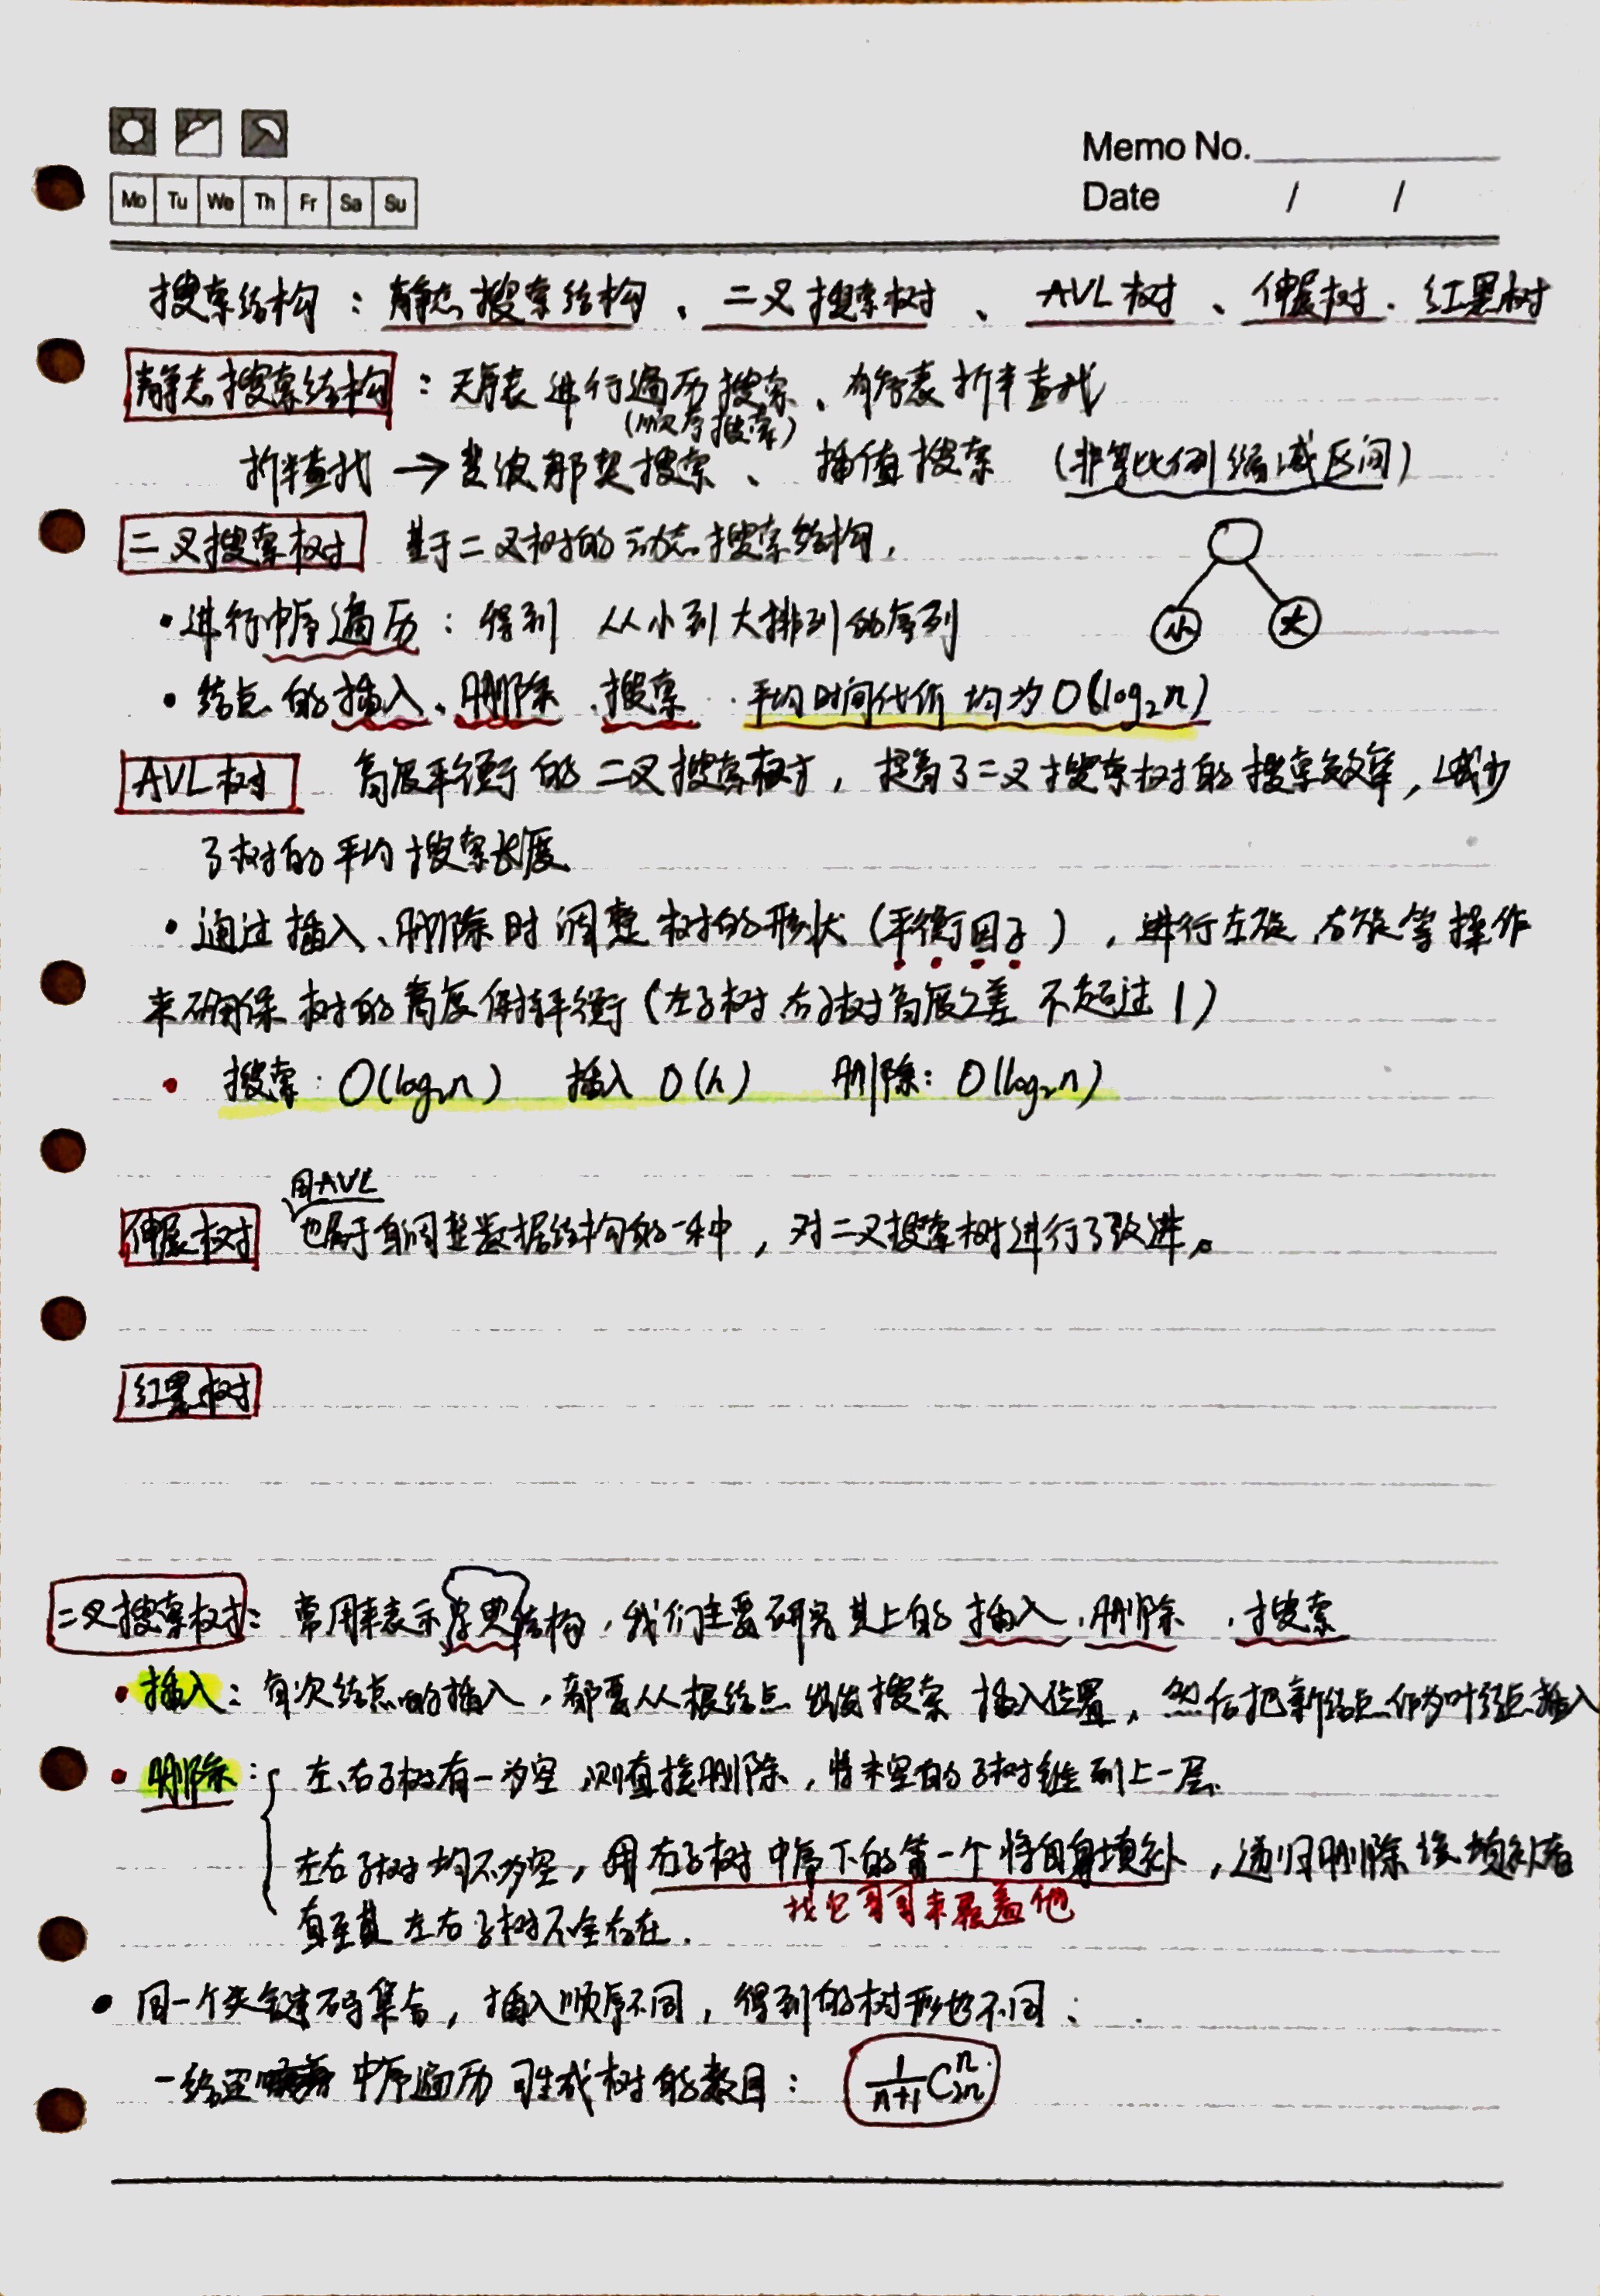 Memo No.
Mo Tu We Th Fr Sa Su
Date / /
搜索结构：静态搜索结构、二叉搜索树、AVL树、伸展树、红黑树
静态搜索结构：无序表进行遍历搜索、有序表折半查找
(顺序搜索)
折半查找→斐波那契搜索、插值搜索 (非等比例缩减区间)
二叉搜索树 基于二叉树的动态搜索结构，
·进行中序遍历：得到 从小到大排列的序列
小 大
·结点的插入、删除、搜索 平均时间代价均为O(log₂n)
AVL树 高度平衡的二叉搜索树，提高了二叉搜索树的搜索效率，减少
了树的平均搜索长度
·通过插入、删除时调整树的形状(平衡因子)，进行左旋、右旋等操作
来确保树的高度保持平衡(左子树、右子树高度之差不超过1)
·搜索：O(log₂n) 插入 O(h) 删除：O(log₂n)
同AVL
伸展树 也属于自调整数据结构的一种，对二叉搜索树进行了改进。
红黑树
二叉搜索树：常用来表示字典结构，我们主要研究其上的插入、删除、搜索
·插入：每次结点的插入，都要从根结点出发搜索插入位置，然后把新结点作为叶结点插入
·删除：左、右子树有一为空，则直接删除，将未空的子树继到上一层.
左右子树均不为空，用右子树中序下的第一个将自身填补，递归删除该填补者
找它哥哥来覆盖他
直至其左右子树不全存在.
·同一个关键码集合，插入顺序不同，得到的树形也不同、
一给定 中序遍历可生成树的数目： 1/(n+1) C₂ₙⁿ